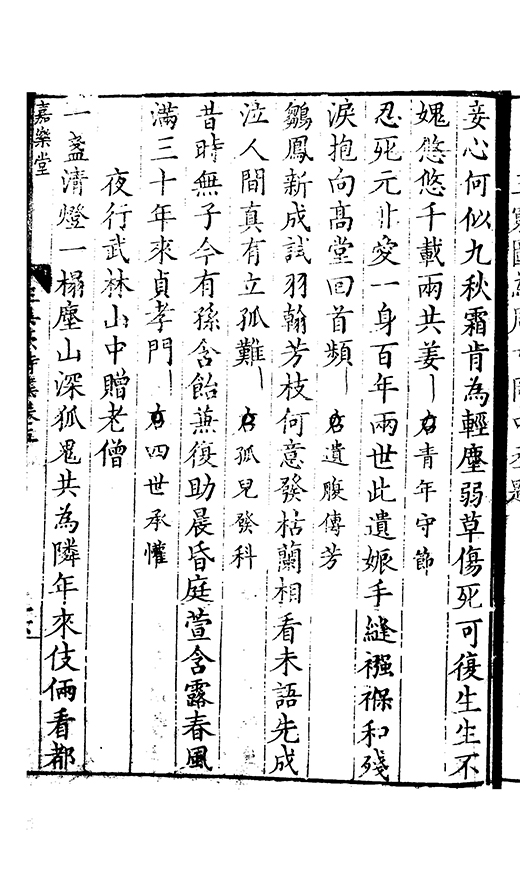 妾心何似九秋霜肯為輕塵弱草傷死可復生生不
媿悠悠千載兩共姜｜右青年守節
忍死元非愛一身百年兩世此遺娠手縫襁褓和殘
淚抱向高堂回首頻｜右遺腹傳芳
鶵鳳新成試羽翰芳枝何意發枯蘭相看未語先成
泣人間真有立孤難｜右孤兒發科
昔時無子今有孫含飴蕪復助晨昏庭萱含露春風
滿三十年來貞孝門｜右四世承懽
夜行武林山中贈老僧
一盞清燈一榻塵山深狐鬼共為隣年來伎倆看都
嘉樂堂